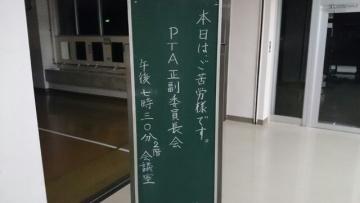 本日はご苦労様です。
PTA正副委員長会
午後七時三〇分 2階 会議室